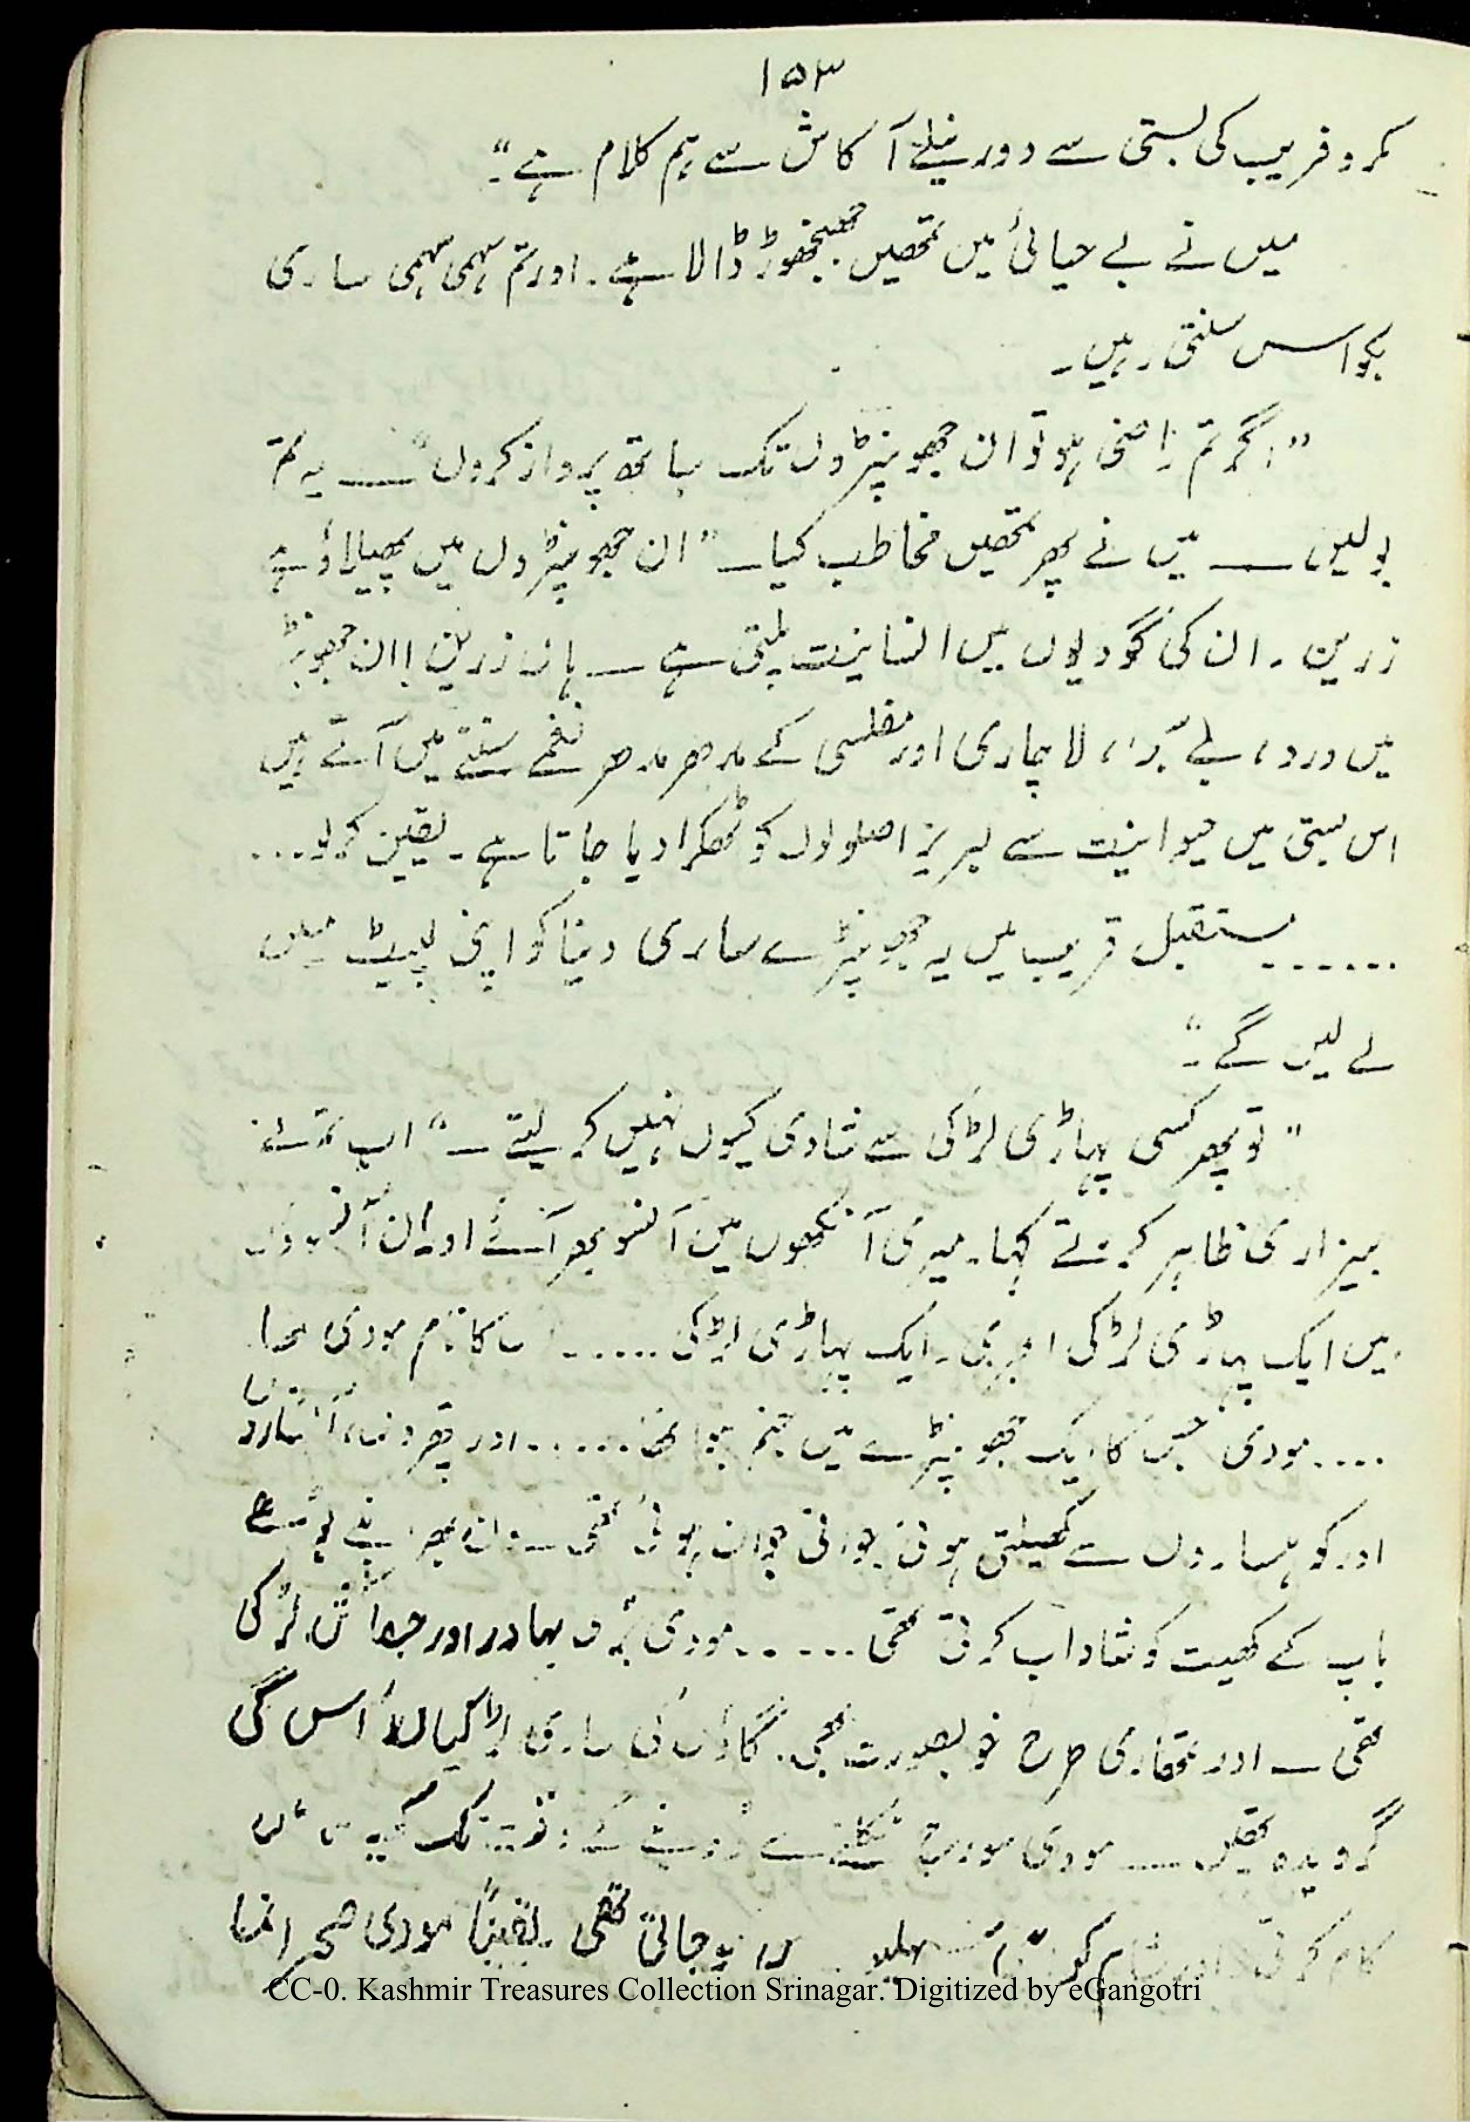 ۱۵۳
مکر و فریب کی بستی سے دور نیلے آکاش سے ہم کلام ہے۔"
میں نے بے حیائی میں تمھیں جھنجھوڑ ڈالا ہے۔ اور تم سہمی سہمی ساری
بکواس سنتی رہیں۔
"اگر تم راضی ہو تو ان جھونپڑوں تک ساتھ پرواز کروں" ــــ یہ تم
بولیں ــــ میں نے پھر تمھیں مخاطب کیا ــ "ان جھونپڑوں میں پھیلاؤ ہے
زرین۔ ان کی گودیوں میں انسانیت پلتی ہے ــ ہاں زرین! ان جھونپڑ
میں درد، لاچاری اور مفلسی کے مدھر مدھر نغمے سننے میں آتے ہیں
اس بستی میں حیوانیت سے لبریز اصولوں کو ٹھکرا دیا جاتا ہے۔ یقین کرلو...
...... مستقبل قریب میں یہ جھونپڑے ساری دنیا کو اپنی لپیٹ میں
لے لیں گے۔"
"تو پھر کسی پہاڑی لڑکی سے شادی کیوں نہیں کر لیتے ــ" اب تم نے
بیزاری ظاہر کرتے کہا۔ میری آنکھوں میں آنسو بھر آئے اور ان آنسوؤں
میں ایک پہاڑی لڑکی ابھری۔ ایک پہاڑی لڑکی ...... کا نام مودی تھا۔
.... مودی جس کا ایک جھونپڑے میں جنم ہوا تھا ...... اور پھر
اور کوہساروں سے کھیلتی ہوئی جوانی جوان ہوئی تھی ــ اپنے بوڑھے
باپ کے کھیت کو شاداب کرتی تھی ...... مودی بہادر اور لڑکی
تھی ــ اور تمھاری طرح خوبصورت بھی۔ گاؤں کی ساری لڑکیاں اُس کی
گرویدہ تھیں ــــ مودی سورج نکلنے سے تک
کام کرتی اور شام کو جاتی تھی۔ یقیناً مودی
CC-0. Kashmir Treasures Collection Srinagar. Digitized by eGangotri